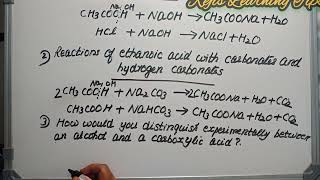 Kefis Learning Tips
Na, OH
CH3COOH + NaOH → CH3COONa + H2O
HCl + NaOH → NaCl + H2O
2) Reactions of ethanoic acid with carbonates and
hydrogen carbonates
Na, OH
2CH3COOH + Na2CO3 → 2CH3COONa + H2O + CO2
CH3COOH + NaHCO3 → CH3COONa + H2O + CO2
3) How would you distinguish experimentally between
an alcohol and a carboxylic acid?.